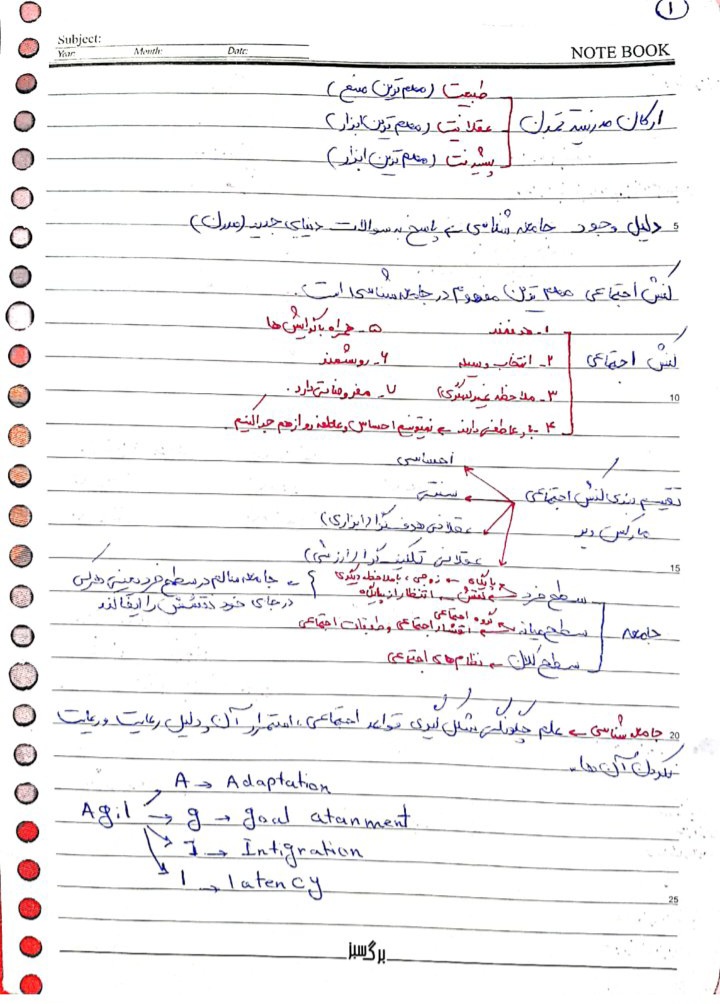 ۱
Subject:
Year: Month: Date:
NOTE BOOK
طبیعت (مهم ترین منبع)
ارکان مدرنیته تمدن
عقلانیت (مهم ترین ابزار)
(مهم ترین ابزار)
5 دلیل وجود جامعه شناسی ← پاسخ به سوالات دنیای جدید (مدرن)
کنش اجتماعی مهم ترین مفهوم در جامعه شناسی است.
۱- هدفمند ۵- همراه با گرایش ها
کنش اجتماعی ۲- انتخاب وسیله ۶- روشمند
10 ۳- ملاحظه ۷- مفروضاتی دارد.
۴- بار عاطفی دارند ← نمیتونیم احساس و عاطفه رو از هم جدا کنیم.
احساسی
تقسیم بندی کنش اجتماعی سنتی
ماکس وبر عقلانی هدف گرا (ابزاری)
15 عقلانی گرا (ارزشی)
سطح فرد پایگاه ← زوجی، با ملاحظه دیگری
نقش ← انتظار از پایگاه
← جامعه سالم در سطح فرد یعنی هرکس
در جای خود نقشش را ایفا کند
جامعه سطح میانه گروه اجتماعی
اقشار اجتماعی و طبقات اجتماعی
سطح کلان ← نظام های اجتماعی
20 جامعه شناسی ← علم چگونگی شکل گیری قواعد اجتماعی، استمرار آن و دلیل رعایت و رعایت
نکردن آن ها.
A → Adaptation
Agil → g → goal atanment
I → Intigration
l → latency
25
برگ سبز